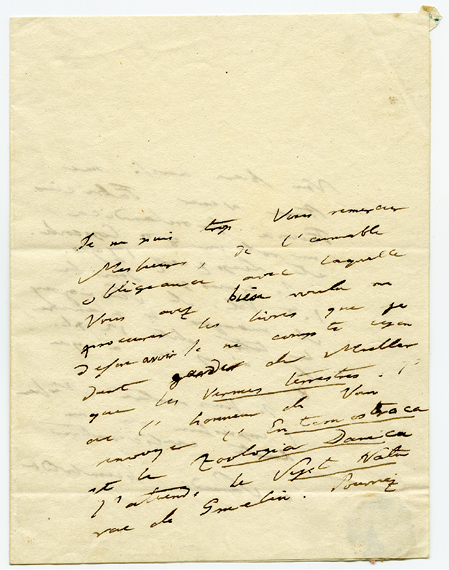 Je ne puis trop Vous remercier
Messieurs, de l'aimable
obligeance avec laquelle
Vous avez bien voulu me
procurer les livres que je
desire avoir. Je ne compte
garder de Mueller
que les Vermes terrestres. J'
ai l'honneur de Vous
renvoyer l'Entomostraca
et la Zoologia Danica
J'attends le Syst. Natu
rae de Gmelin. Pourriez